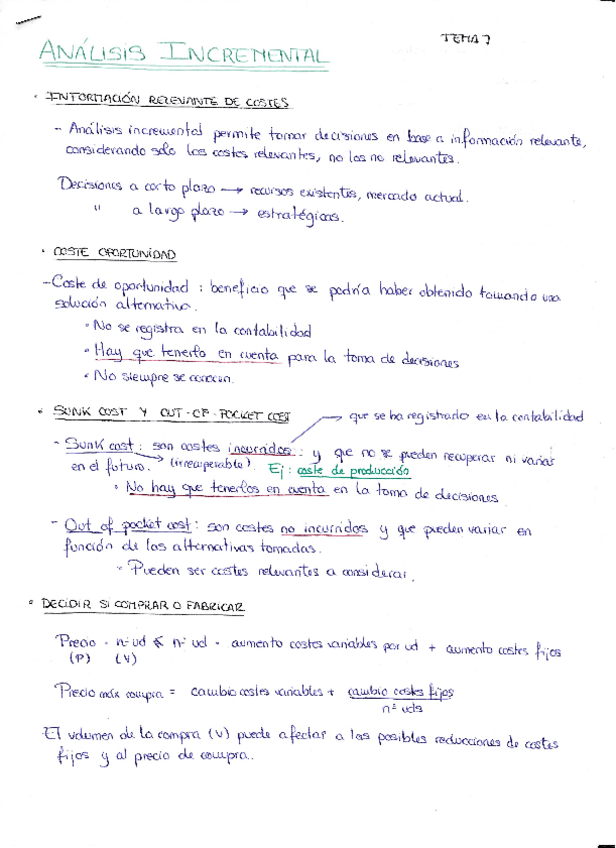 TEMA 7
ANÁLISIS INCREMENTAL
· INFORMACIÓN RELEVANTE DE COSTES
- Análisis incremental permite tomar decisiones en base a información relevante,
considerando solo los costes relevantes, no los no relevantes.
Decisiones a corto plazo → recursos existentes, mercado actual.
" a largo plazo → estratégicas.
· COSTE OPORTUNIDAD
- Coste de oportunidad : beneficio que se podría haber obtenido tomando una
solución alternativa.
· No se registra en la contabilidad
· Hay que tenerlo en cuenta para la toma de decisiones
· No siempre se conocen.
· SUNK COST Y OUT-OF-POCKET COST
que se ha registrado en la contabilidad
- Sunk cost : son costes incurridos : y que no se pueden recuperar ni variar
en el futuro. → (irrecuperable). Ej : coste de producción
· No hay que tenerlos en cuenta en la toma de decisiones
- Out of pocket cost : son costes no incurridos y que pueden variar en
función de las alternativas tomadas.
· Pueden ser costes relevantes a considerar.
· DECIDIR SI COMPRAR O FABRICAR
Precio · nº ud < nº ud · aumento costes variables por ud + aumento costes fijos
(P) (V)
Precio máx compra = cambio costes variables + cambio costes fijos
nº uds
El volumen de la compra (V) puede afectar a las posibles reducciones de costes
fijos y al precio de compra..